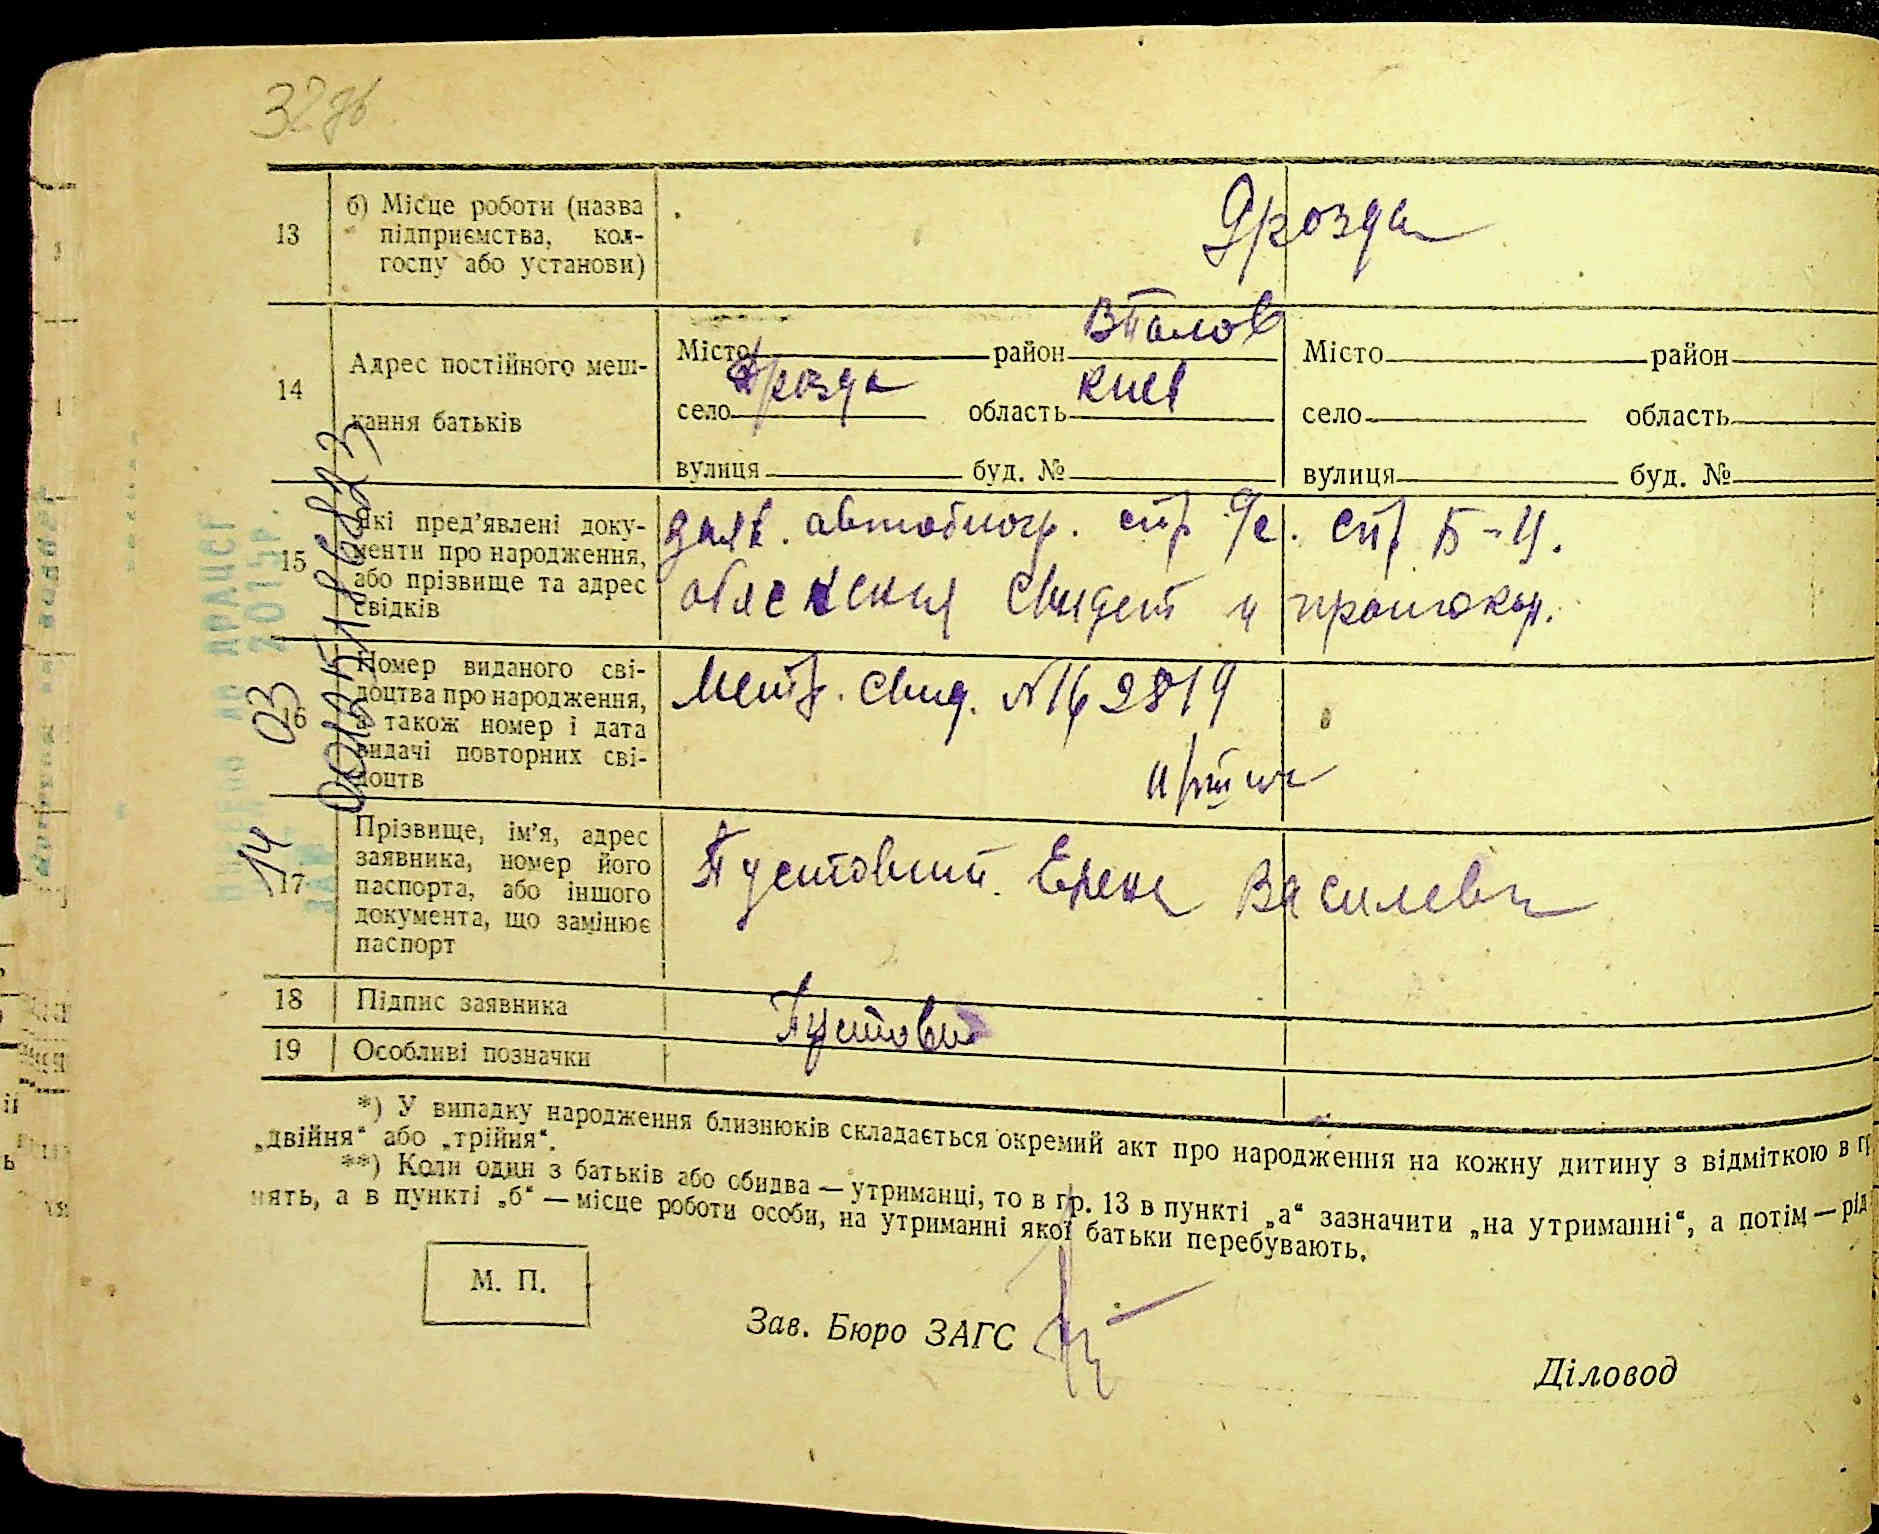 13 б) Місце роботи (назва
підприємства, кол-
госпу або установи)
Дрозда
14 Адрес постійного меш-
кання батьків
Місто район Втолов Місто район
село Дрозда область Киев село область
вулиця буд. № вулиця буд. №
15 Які пред'явлені доку-
менти про народження,
або прізвище та адрес
свідків
заяв. автобиогр. спр с/с. спр Б-Ц.
обяснения свидет и протокол.
16 Номер виданого сві-
доцтва про народження,
а також номер і дата
видачі повторних сві-
доцтв
Метр. свид. №
17 Прізвище, ім'я, адрес
заявника, номер його
паспорта, або іншого
документа, що замінює
паспорт
Пустовит. Елена Василевн
18 Підпис заявника
Пустовит
19 Особливі позначки
*) У випадку народження близнюків складається окремий акт про народження на кожну дитину з відміткою в
„двійня“ або „трійня“.
**) Коли один з батьків або обидва — утриманці, то в гр. 13 в пункті „а“ зазначити „на утриманні“, а потім — рід
нять, а в пункті „б“ — місце роботи особи, на утриманні якої батьки перебувають.
М. П.
Зав. Бюро ЗАГС
Діловод
ДРАЦСГ
2015р.
14 03